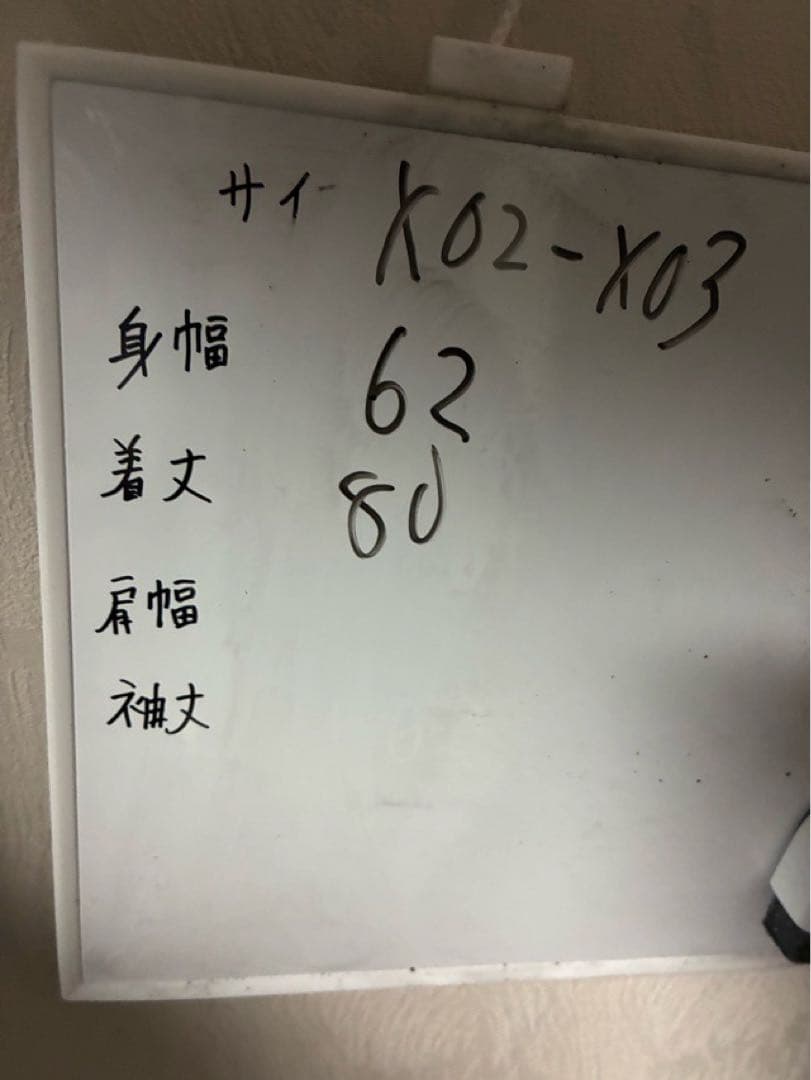 サイー XO2-XO3
身幅 62
着丈 80
肩幅
袖丈